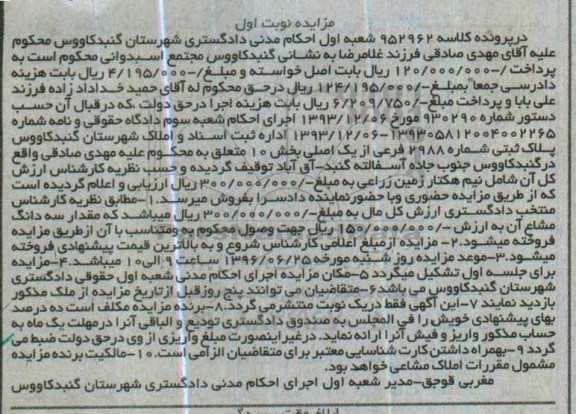 مزایده نوبت اول
درپرونده کلاسه ۹۵۲۹۶۲ شعبه اول احکام مدنی دادگستری شهرستان گنبدکاووس محکوم
علیه آقای مهدی صادقی فرزند غلامرضا به نشانی گنبدکاووس مجتمع آسبدوانی محکوم است به
پرداخت /-۱۲۰/۰۰۰/۰۰۰ ریال بابت اصل خواسته و مبلغ/-۴/۱۹۵/۰۰۰ ریال بابت هزینه
دادرسی جمعا بمبلغ-/۱۲۴/۱۹۵/۰۰۰ ریال درحق محکوم له آقای حمید خداداد زاده فرزند
علی بابا و پرداخت مبلغ-/۶/۲۰۹/۷۵۰ ریال بابت هزینه اجرا درحق دولت ،که درقبال آن حسب
دستور شماره ۹۳۰۲۹۰ مورخ ۱۳۹۳/۱۲/۰۶ اجرای احکام شعبه سوم دادگاه حقوقی و نامه شماره
۱۳۹۳۰۵۸۱۲۰۰۴۰۰۲۲۶۵-۱۳۹۳/۱۲/۰۶ اداره ثبت اسناد و املاک شهرستان گنبدکاووس
پلاک ثبتی شماره ۲۹۸۸ فرعی از یک اصلی بخش ۱۰ متعلق به محکوم علیه مهدی صادقی واقع
درگنبدکاووس جنوب جاده آسفالته گنبد-آق آباد توقیف گردیده و حسب نظریه کارشناس ارزش
کل آن شامل نیم هکتار زمین زراعی به مبلغ-/۳۰۰/۰۰۰/۰۰۰ ریال ارزیابی و اعلام گردیده است
که از طریق مزایده حضوری وبا حضورنماینده دادسرا بفروش میرسد.۱-مطابق نظریه کارشناس
منتخب دادگستری ارزش کل مال به مبلغ-/۳۰۰/۰۰۰/۰۰۰ ریال میباشد که مقدار سه دانگ
مشاع آن به ارزش -/۱۵۰/۰۰۰/۰۰۰ ریال جهت وصول محکوم به ومتناسب با آن ازطریق مزایده
فروخته میشود.۲- مزایده ازمبلغ اعلامی کارشناس شروع و به بالاترین قیمت پیشنهادی فروخته
میشود.۳-موعد مزایده روز شنبه مورخه ۱۳۹۶/۰۶/۲۵ ساعت ۹ الی ۱۰ میباشد.۴-مزایده
برای جلسه اول تشکیل میگردد ۵-مکان مزایده اجرای احکام مدنی شعبه اول حقوقی دادگستری
شهرستان گنبدکاووس می باشد۶-متقاضیان می توانند پنج روزقبل ازتاریخ مزایده از ملک مذکور
بازدید نمایند ۷-این آگهی فقط دریک نوبت منتشرمی گردد.۸-برنده مزایده مکلف است ده درصد
بهای پیشنهادی خویش را فی المجلس به صندوق دادگستری تودیع و الباقی آنرا درمهلت یک ماه به
حساب مذکور واریز و فیش آنرا ارائه نماید. درغیر اینصورت مبلغ واریزی از وی درحق دولت ضبط می
گردد ۹-بهمراه داشتن کارت شناسایی معتبر برای متقاضیان الزامی است.۱۰-مالکیت برنده مزایده
مشمول مقررات املاک مشاعی خواهد بود.
مغربی قوجق-مدیر شعبه اول اجرای احکام مدنی دادگستری شهرستان گنبدکاووس